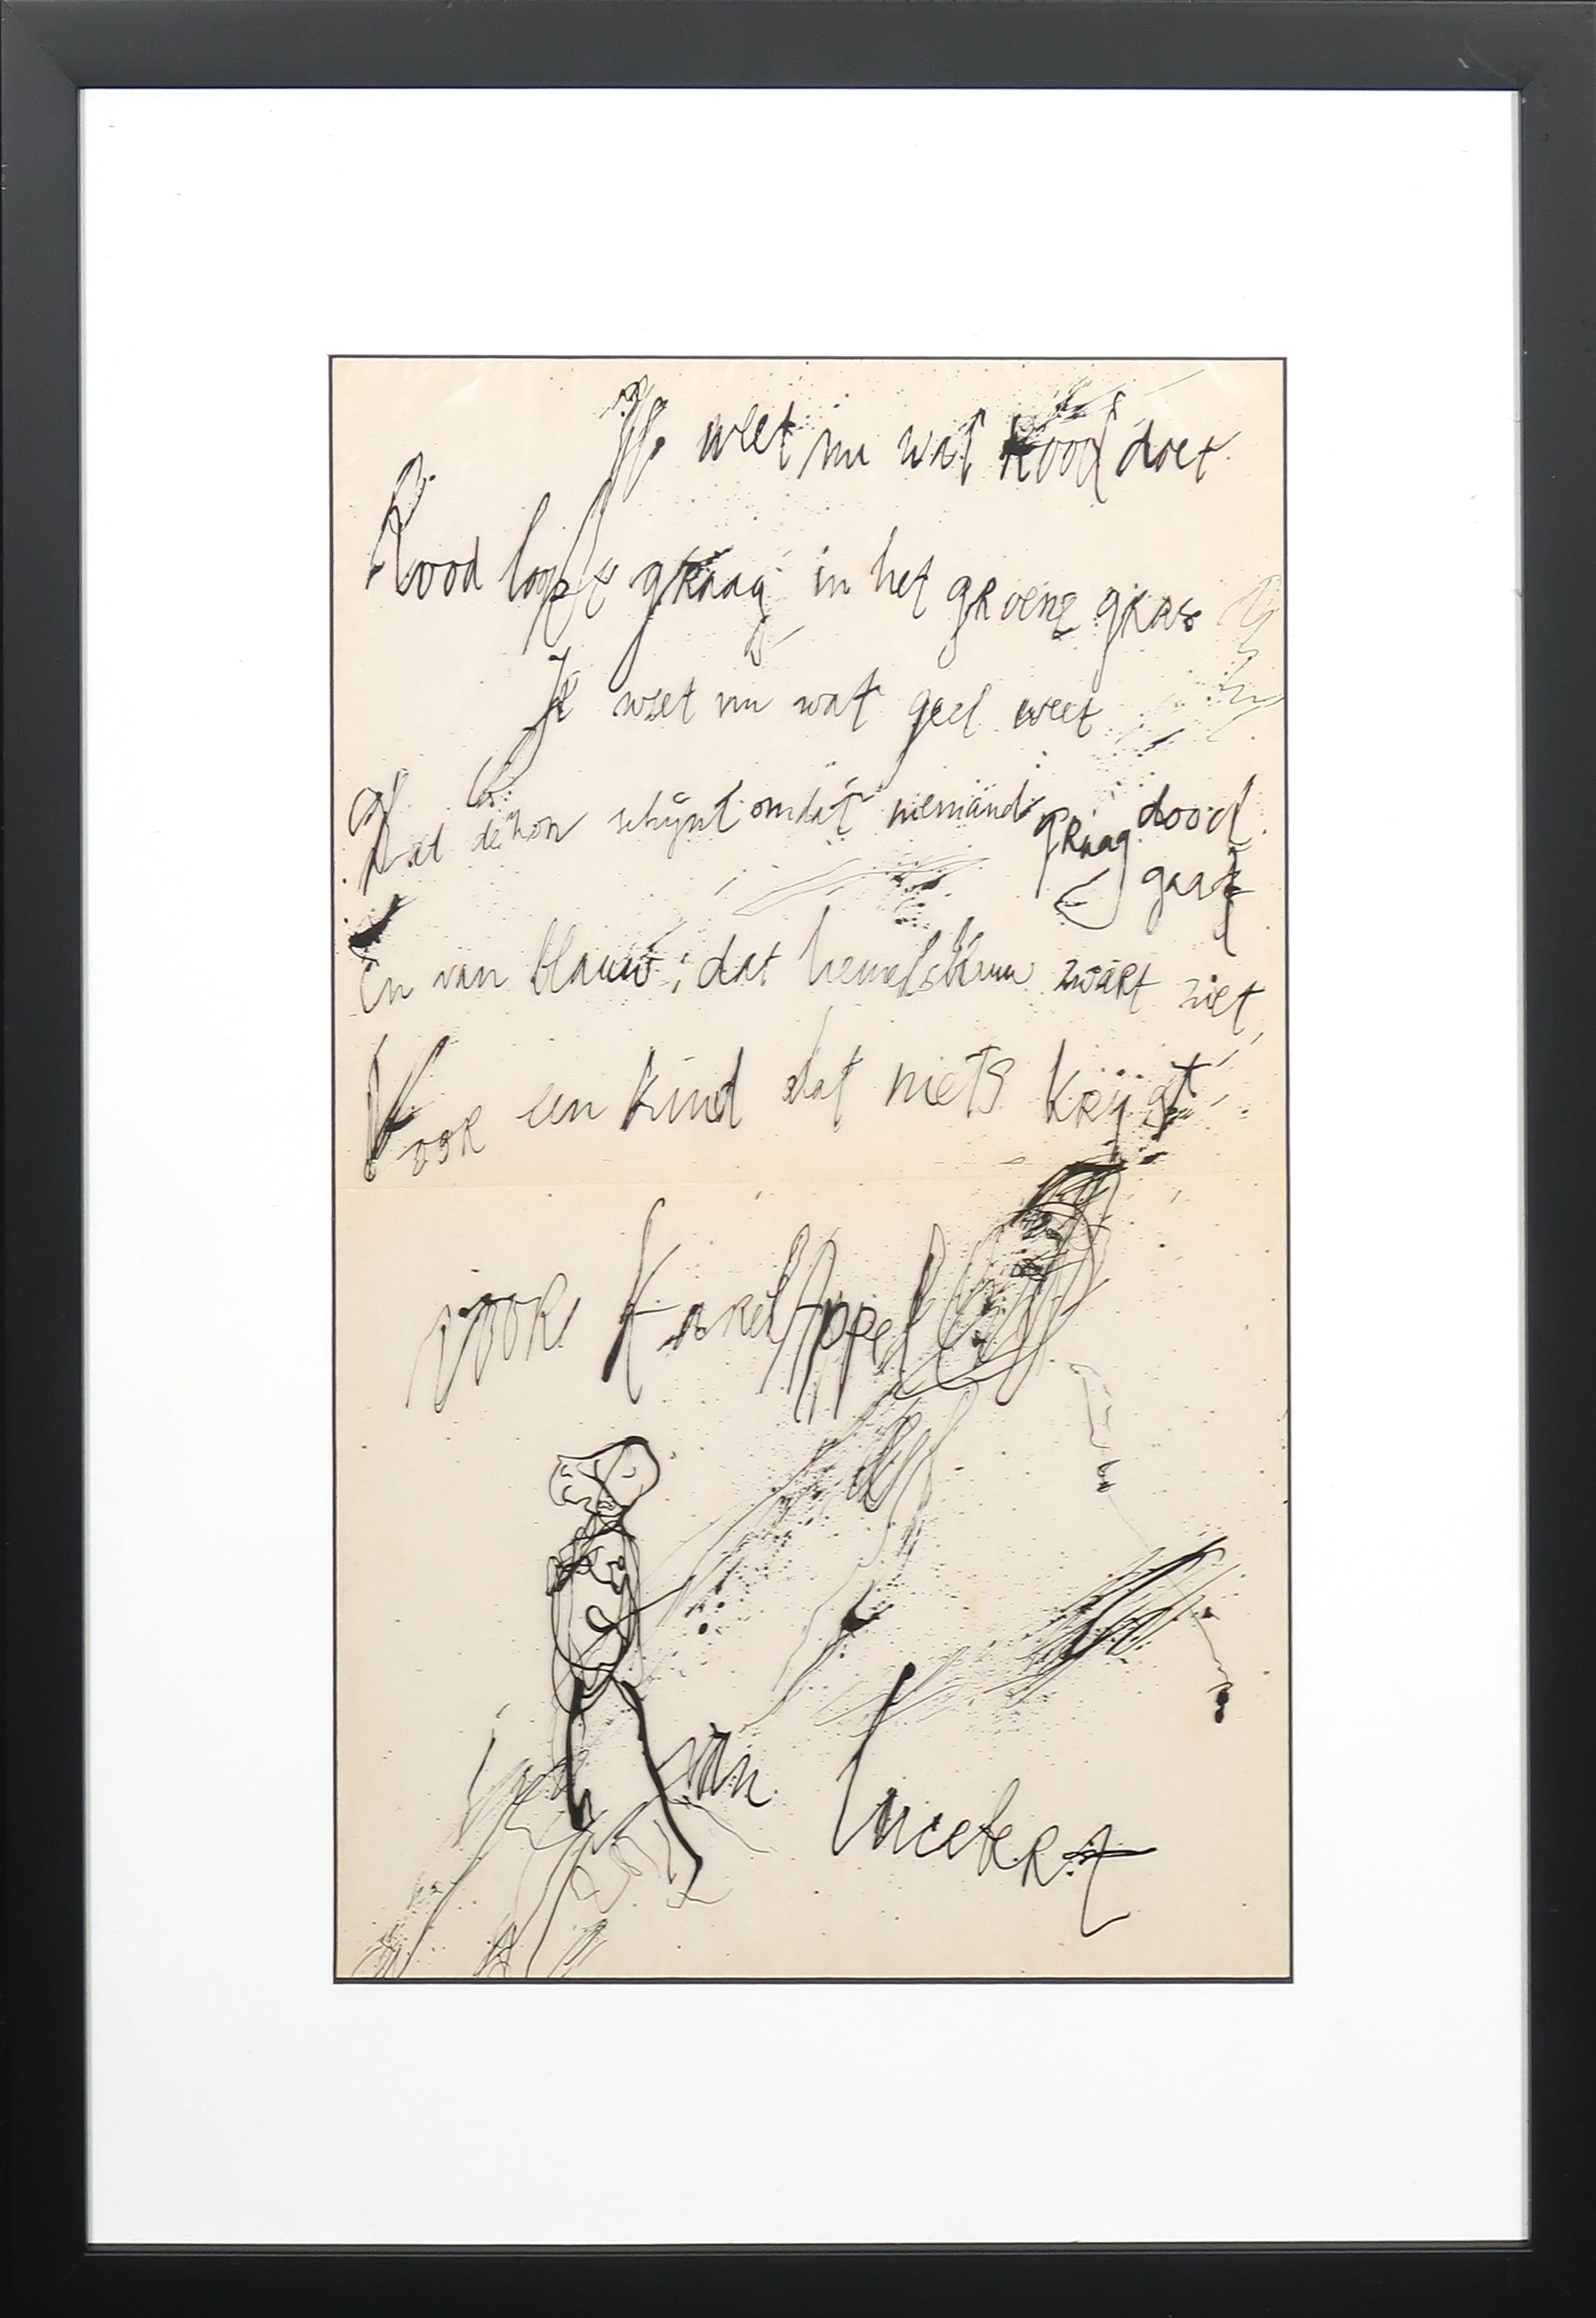 Ik weet nu wat Rood doet
Rood loopt graag in het groene gras
Ik weet nu wat geel weet
Dat de zon schijnt omdat niemand graag dood
gaat
En van blauw; dat hemelsblauw zwart ziet
Voor een kind dat niets krijgt
voor Karel Appel
van Lucebert